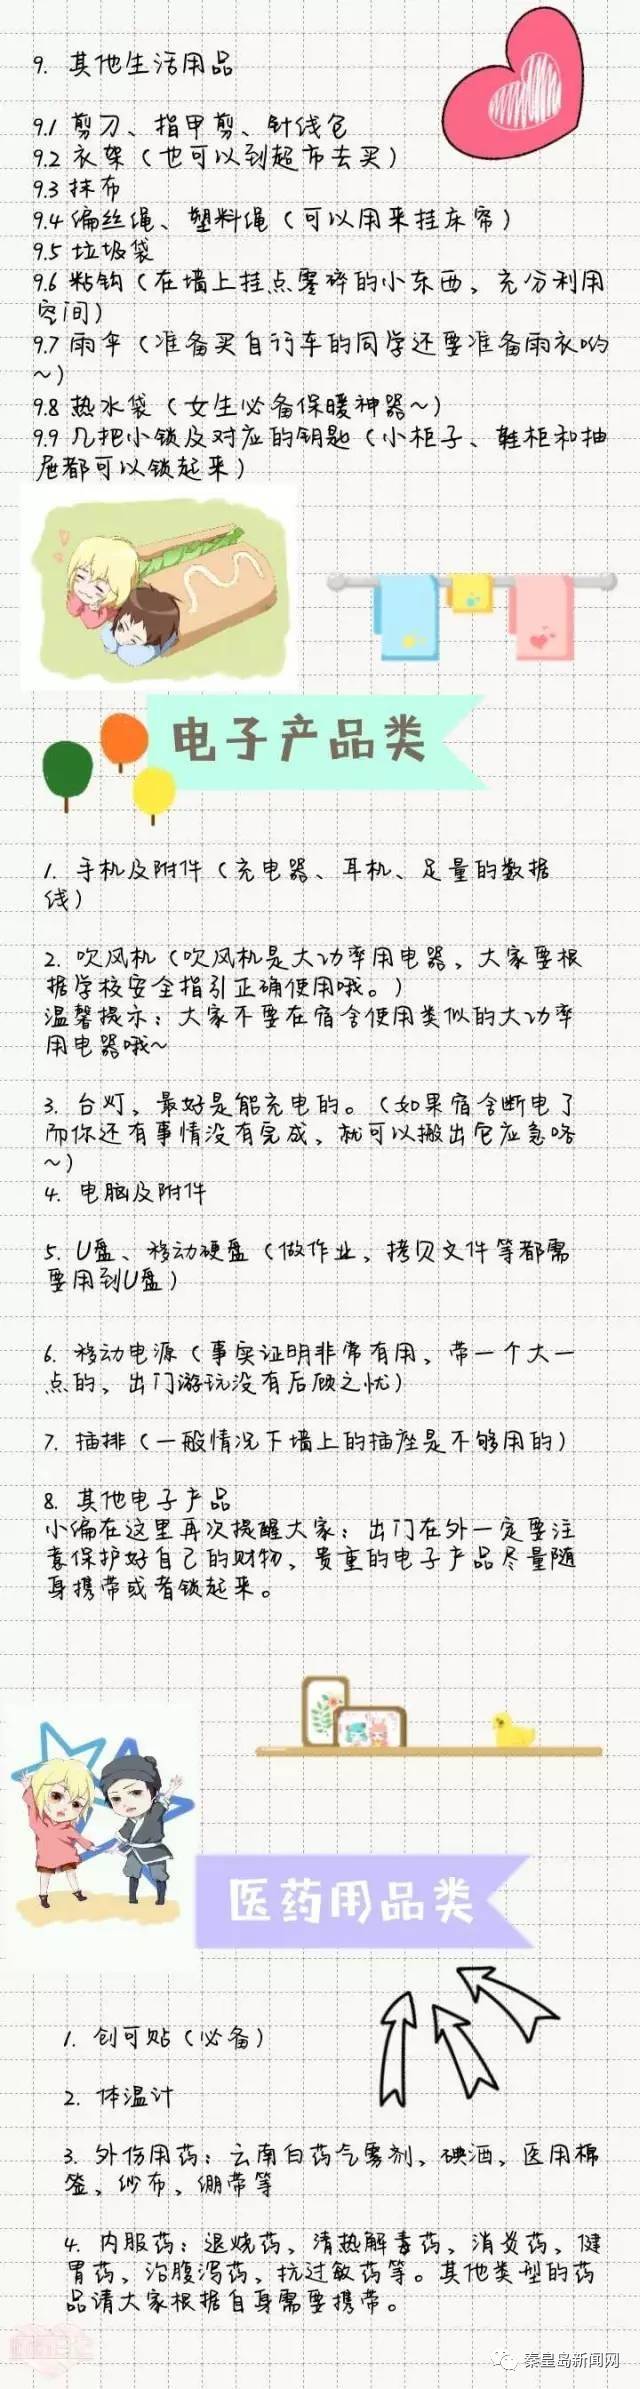 9. 其他生活用品
9.1 剪刀、指甲剪、针线包
9.2 衣架（也可以到超市去买）
9.3 抹布
9.4 编丝绳、塑料绳（可以用来挂床帘）
9.5 垃圾袋
9.6 粘钩（在墙上挂点零碎的小东西，充分利用
空间）
9.7 雨伞（准备买自行车的同学还要准备雨衣哟
~）
9.8 热水袋（女生必备保暖神器~）
9.9 几把小锁及对应的钥匙（小柜子、鞋柜和抽
屉都可以锁起来）
电子产品类
1. 手机及附件（充电器、耳机、足量的数据
线）
2. 吹风机（吹风机是大功率用电器，大家要根
据学校安全指引正确使用哦。）
温馨提示：大家不要在宿舍使用类似的大功率
用电器哦~
3. 台灯，最好是能充电的。（如果宿舍断电了
而你还有事情没有完成，就可以搬出它应急咯
~）
4. 电脑及附件
5. U盘、移动硬盘（做作业，拷贝文件等都需
要用到U盘）
6. 移动电源（事实证明非常有用，带一个大一
点的，出门游玩没有后顾之忧）
7. 插排（一般情况下墙上的插座是不够用的）
8. 其他电子产品
小编在这里再次提醒大家：出门在外一定要注
意保护好自己的财物，贵重的电子产品尽量随
身携带或者锁起来。
医药用品类
1. 创可贴（必备）
2. 体温计
3. 外伤用药：云南白药气雾剂，碘酒，医用棉
签，纱布，绷带等
4. 内服药：退烧药，清热解毒药，消炎药，健
胃药，治腹泻药，抗过敏药等。其他类型的药
品请大家根据自身需要携带。
秦皇岛新闻网